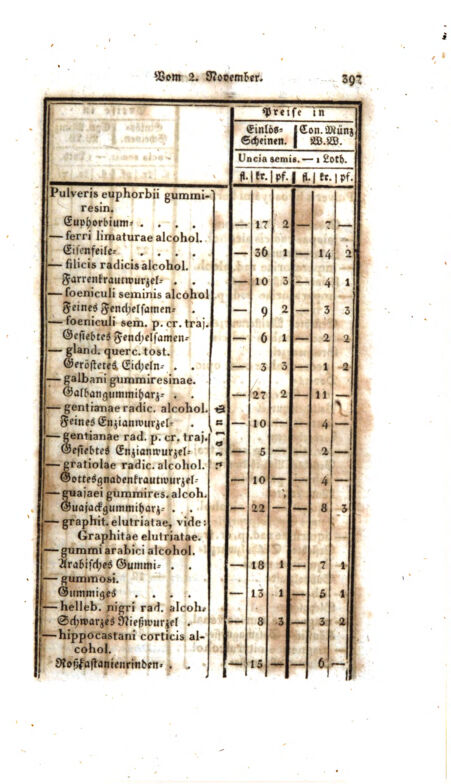 Vom 2. November. 397
Preise in
Einlös- Con. Münz
Scheinen. W.W.
Uncia semis. — 1 Loth.
fl. kr. pf. fl. kr. pf.
Pulveris euphorbii gummi-
resin.
Euphorbium- . . . . — 17 2 — 7 —
— ferri limaturae alcohol.
Eisenfeile- . . . . — 36 1 — 14 2
— filicis radicis alcohol.
Farrenkrautwurzel- . . — 10 3 — 4 1
— foeniculi seminis alcohol
Feines Fenchelsamen- . . — 9 2 — 3 3
— foeniculi sem. p. cr. traj.
Gesiebtes Fenchelsamen- — 6 1 — 2 2
— gland. querc. tost.
Geröstetes Eicheln- . . — 3 3 — 1 2
— galbani gummiresinae.
Galbangummiharz- . . — 27 2 — 11 —
— gentianae radic. alcohol.
Feines Enzianwurzel- . — 10 — — 4 —
— gentianae rad. p. cr. traj.
Gesiebtes Enzianwurzel- — 5 — — 2 —
— gratiolae radic. alcohol.
Gottesgnadenkrautwurzel- — 10 — — 4 —
— guajaci gummires. alcoh.
Guajackgummiharz- . . — 22 — — 8 3
— graphit. elutriatae, vide:
Graphitae elutriatae.
— gummi arabici alcohol.
Arabisches Gummi- . . — 18 1 — 7 1
— gummosi.
Gummiges . . . . — 13 1 — 5 1
— helleb. nigri rad. alcoh.
Schwarzes Nießwurzel . — 8 3 — 3 2
— hippocastani corticis al-
cohol.
Roßkastanienrinden- . . — 15 — — 6 —
Pulver.